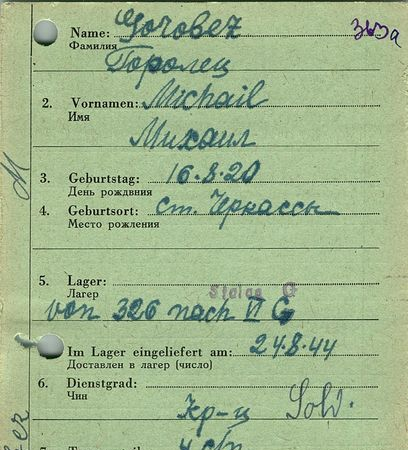 Name: Gorobez
363a
Фамилия
Горопец
2. Vornamen: Michail
Имя
Михаил
3. Geburtstag: 16.8.20
День рождвния
4. Geburtsort: ст. Черкассы
Место рожления
M
5. Lager: Stalag G
Лагер
von 326 nach VI G
Im Lager eingeliefert am: 24.8.44
Доставлен в лагер (число)
6. Dienstgrad:
Чин
Кр-ц Sold.